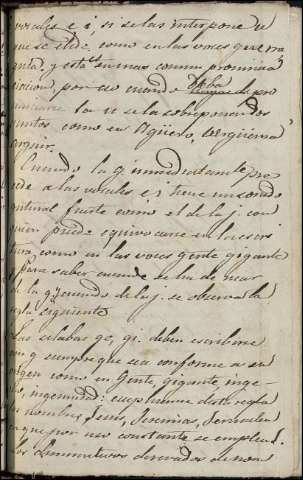 vocales e i, si se las interpone u
que se elide, como en las voces guerra
guita; y esta es su mas comun pronuncia
ciacion, por eso cuando deba pro
nunciarse la u se la sobreponen dos
puntos como en Agüero, vergüenza
arguir.
Cuando la g inmediatamte pre
cede a las vocales e i tiene un sonido
gutural fuerte como el de la j. con
quien puede equivocarse en la escri
tura como en las voces gente gigante
y para saber cuando se ha de usar
de la g y cuando de la j. se observa la
regla siguiente
Las silabas ge, gi. deben escribirse
con g siempre que sea conforme a su
origen como en Gente, gigante, inge-
nio, ingenuidad: esceptuanse de esta regla
los nombres Jesus, Jeremias, Jerusalen
en que por uso constante se emplea J.
Los diminutivos derivados de nom